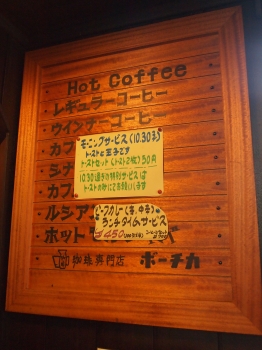 Hot Coffee
レギュラーコーヒー
ウインナーコーヒー
カプ
モーニングサービス(10.30まで)
トーストと玉子です
トーストセット(トースト2枚)30円
シナ
10.30過ぎの特別サービスは
カフ
トーストのみにてお願いします
ルシア
ビーフカレー(辛、中辛)の
ランチタイムサービス
ホット
¥450
珈琲専門店 ポーチカ